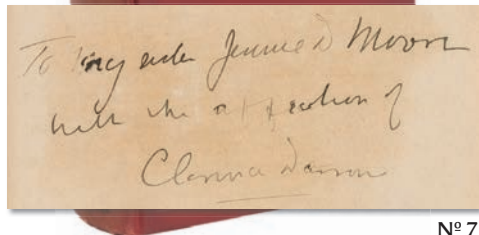 To my sister Jennie D Moore
with the affection of
Clarence Darrow
Nº 7